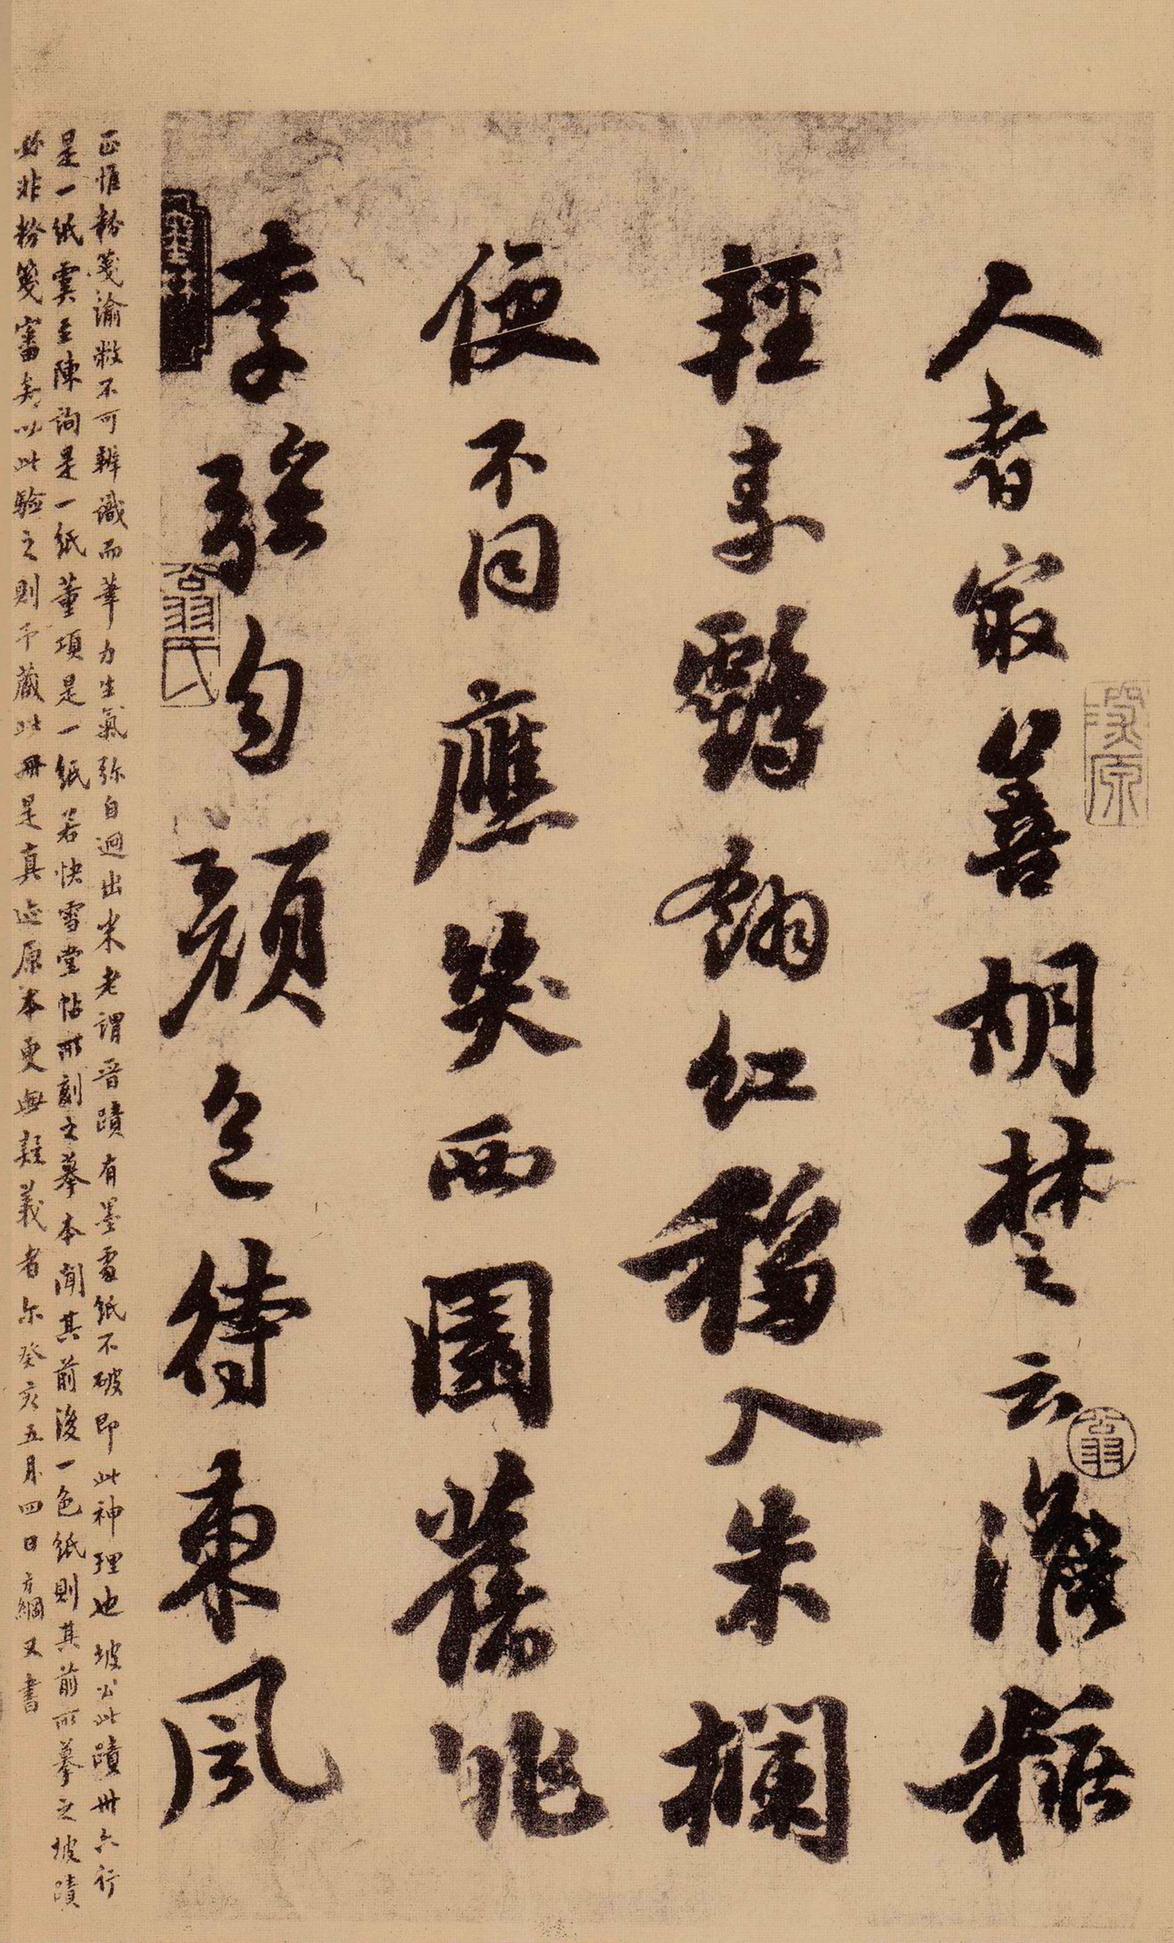 人者冣善胡楚云澹粧
輕素鶴翎紅移入朱欄
便不同應笑西園舊桃
李強勻顏色待東風
正惟粉箋渝敝不可辨識而筆力生氣弥自迥出米老謂晉蹟有墨處紙不破即此神理也坡公此蹟卅六行
是一紙虞至陳詢是一紙董項是一紙若快雪堂帖所刻之摹本聞其前後一色紙則其前所摹之坡蹟
必非粉箋審矣以此驗之則予藏此冊是真迹原本更無疑義者尔癸亥五月四日方綱又書
翁氏
翁